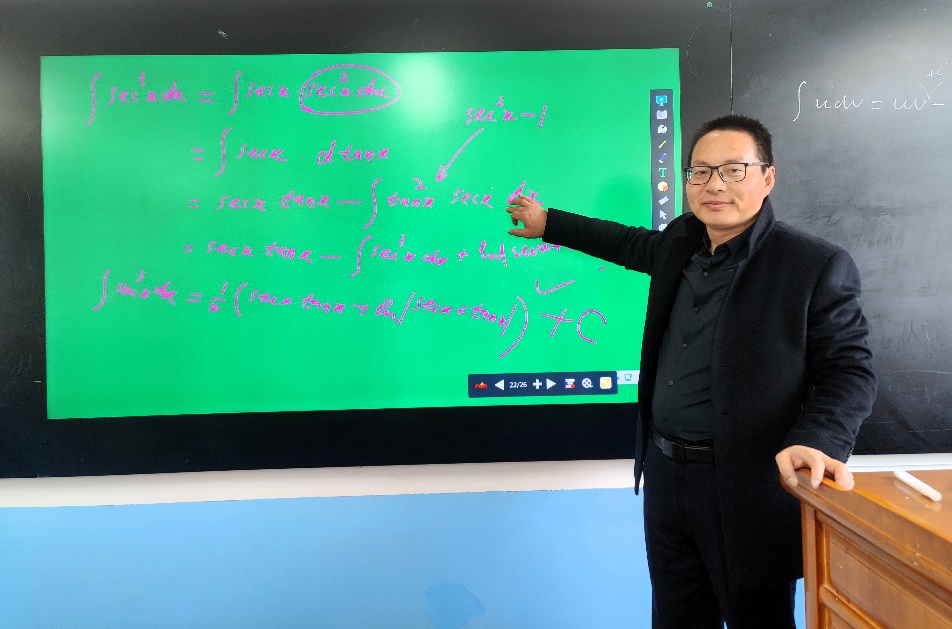 ∫sec³xdx = ∫secx sec²xdx
sec²x-1
= ∫secx · dtanx
= secx tanx - ∫tan²x secx dx
= secx tanx - ∫sec³x dx + ln|
∫sec³xdx = 1/2 (secx tanx + ln|secx+tanx|) + C
22/26
∫udv = uv -